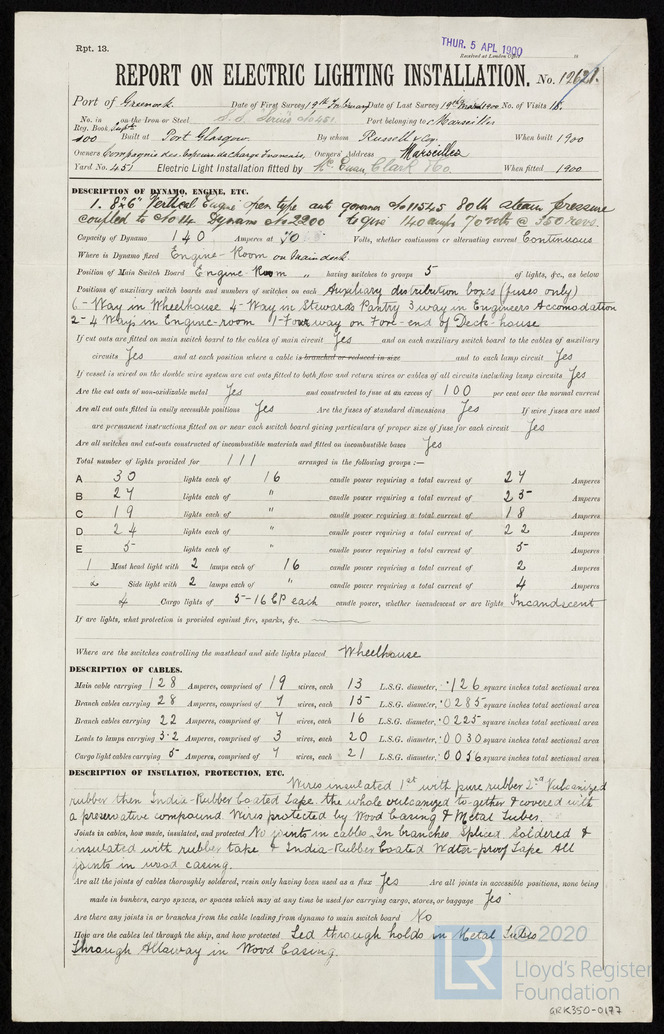 Rpt. 13.
THUR. 5 APL 1900
Received at London Office
REPORT ON ELECTRIC LIGHTING INSTALLATION. No. 12621.
Port of Greenock Date of First Survey 19th February Date of Last Survey 19th March 1900 No. of Visits 18
No. in Reg. Book on the Iron or Steel S.S. No 451 Port belonging to Marseilles
Built at Port Glasgow By whom Russell & Co. When built 1900
Owners Compagnie des Vapeurs de Charge Francais Owners' Address Marseilles
Yard No. 451 Electric Light Installation fitted by Clark & Co. When fitted 1900
DESCRIPTION OF DYNAMO, ENGINE, ETC.
1. 8"x6" Vertical Engine open type auto governor No 11545 80 lb steam pressure
coupled to No 14 Dynamo No 2200 to give 140 amps 70 volts @ 350 revs.
Capacity of Dynamo 140 Amperes at 70 Volts, whether continuous or alternating current Continuous
Where is Dynamo fixed Engine-Room on Main deck.
Position of Main Switch Board Engine Room " having switches to groups 5 of lights, &c., as below
Positions of auxiliary switch boards and numbers of switches on each Auxiliary distribution boxes (fuses only)
6-Way in Wheelhouse 4-Way in Stewards Pantry 3 way in Engineers Accomodation
2-4 Ways in Engine-room 1-Four way on Fore-end of Deck-house
If cut outs are fitted on main switch board to the cables of main circuit Yes and on each auxiliary switch board to the cables of auxiliary
circuits Yes and at each position where a cable is branched or reduced in size and to each lamp circuit Yes
If vessel is wired on the double wire system are cut outs fitted to both flow and return wires or cables of all circuits including lamp circuits Yes
Are the cut outs of non-oxidizable metal Yes and constructed to fuse at an excess of 100 per cent over the normal current
Are all cut outs fitted in easily accessible positions Yes Are the fuses of standard dimensions Yes If wire fuses are used
are permanent instructions fitted on or near each switch board giving particulars of proper size of fuse for each circuit Yes
Are all switches and cut-outs constructed of incombustible materials and fitted on incombustible bases Yes
Total number of lights provided for 111 arranged in the following groups :—
A 30 lights each of 16 candle power requiring a total current of 27 Amperes
B 27 lights each of " candle power requiring a total current of 25 Amperes
C 19 lights each of " candle power requiring a total current of 18 Amperes
D 24 lights each of " candle power requiring a total current of 22 Amperes
E 5 lights each of " candle power requiring a total current of 5 Amperes
1 Mast head light with 2 lamps each of 16 candle power requiring a total current of 2 Amperes
2 Side light with 2 lamps each of " candle power requiring a total current of 4 Amperes
4 Cargo lights of 5-16 CP each candle power, whether incandescent or arc lights Incandscent
If arc lights, what protection is provided against fire, sparks, &c.
Where are the switches controlling the masthead and side lights placed Wheelhouse
DESCRIPTION OF CABLES.
Main cable carrying 128 Amperes, comprised of 19 wires, each 13 L.S.G. diameter, ·126 square inches total sectional area
Branch cables carrying 28 Amperes, comprised of 7 wires, each 15 L.S.G. diameter, ·0285 square inches total sectional area
Branch cables carrying 22 Amperes, comprised of 7 wires, each 16 L.S.G. diameter, ·0225 square inches total sectional area
Leads to lamps carrying 3·2 Amperes, comprised of 3 wires, each 20 L.S.G. diameter, ·0030 square inches total sectional area
Cargo light cables carrying 5 Amperes, comprised of 7 wires, each 21 L.S.G. diameter, ·0056 square inches total sectional area
DESCRIPTION OF INSULATION, PROTECTION, ETC.
Wires insulated 1st with pure rubber 2nd Vulcanized
rubber then India-Rubber Coated Tape. the whole vulcanized to-gether & covered with
a preservative compound. Wires protected by Wood Casing & Metal Tubes.
Joints in cables, how made, insulated, and protected No joints in cables. In branches Spliced Soldered &
insulated with rubber tape & India-Rubber Coated Water-proof Tape All
joints in wood casing.
Are all the joints of cables thoroughly soldered, resin only having been used as a flux Yes Are all joints in accessible positions, none being
made in bunkers, cargo spaces, or spaces which may at any time be used for carrying cargo, stores, or baggage Yes
Are there any joints in or branches from the cable leading from dynamo to main switch board No
How are the cables led through the ship, and how protected Led through holds in Metal Tubes
Through Alleway in Wood Casing.
LR
© 2020
Lloyd's Register
Foundation
GRK350-0177